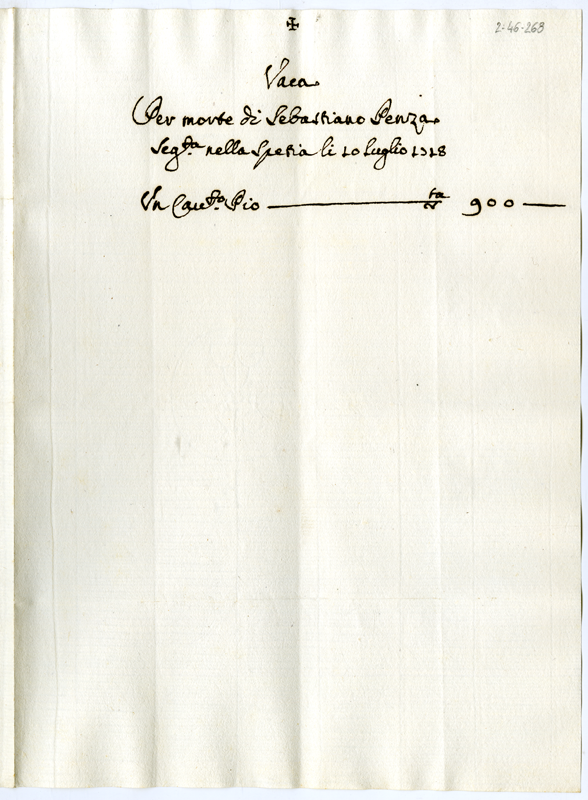 ✠
2-46-268
Vaca
Per morte di Sebastiano Penza
Seg.ta nella Spetia li 10 Luglio 1718
Un Cau.to Pio 900